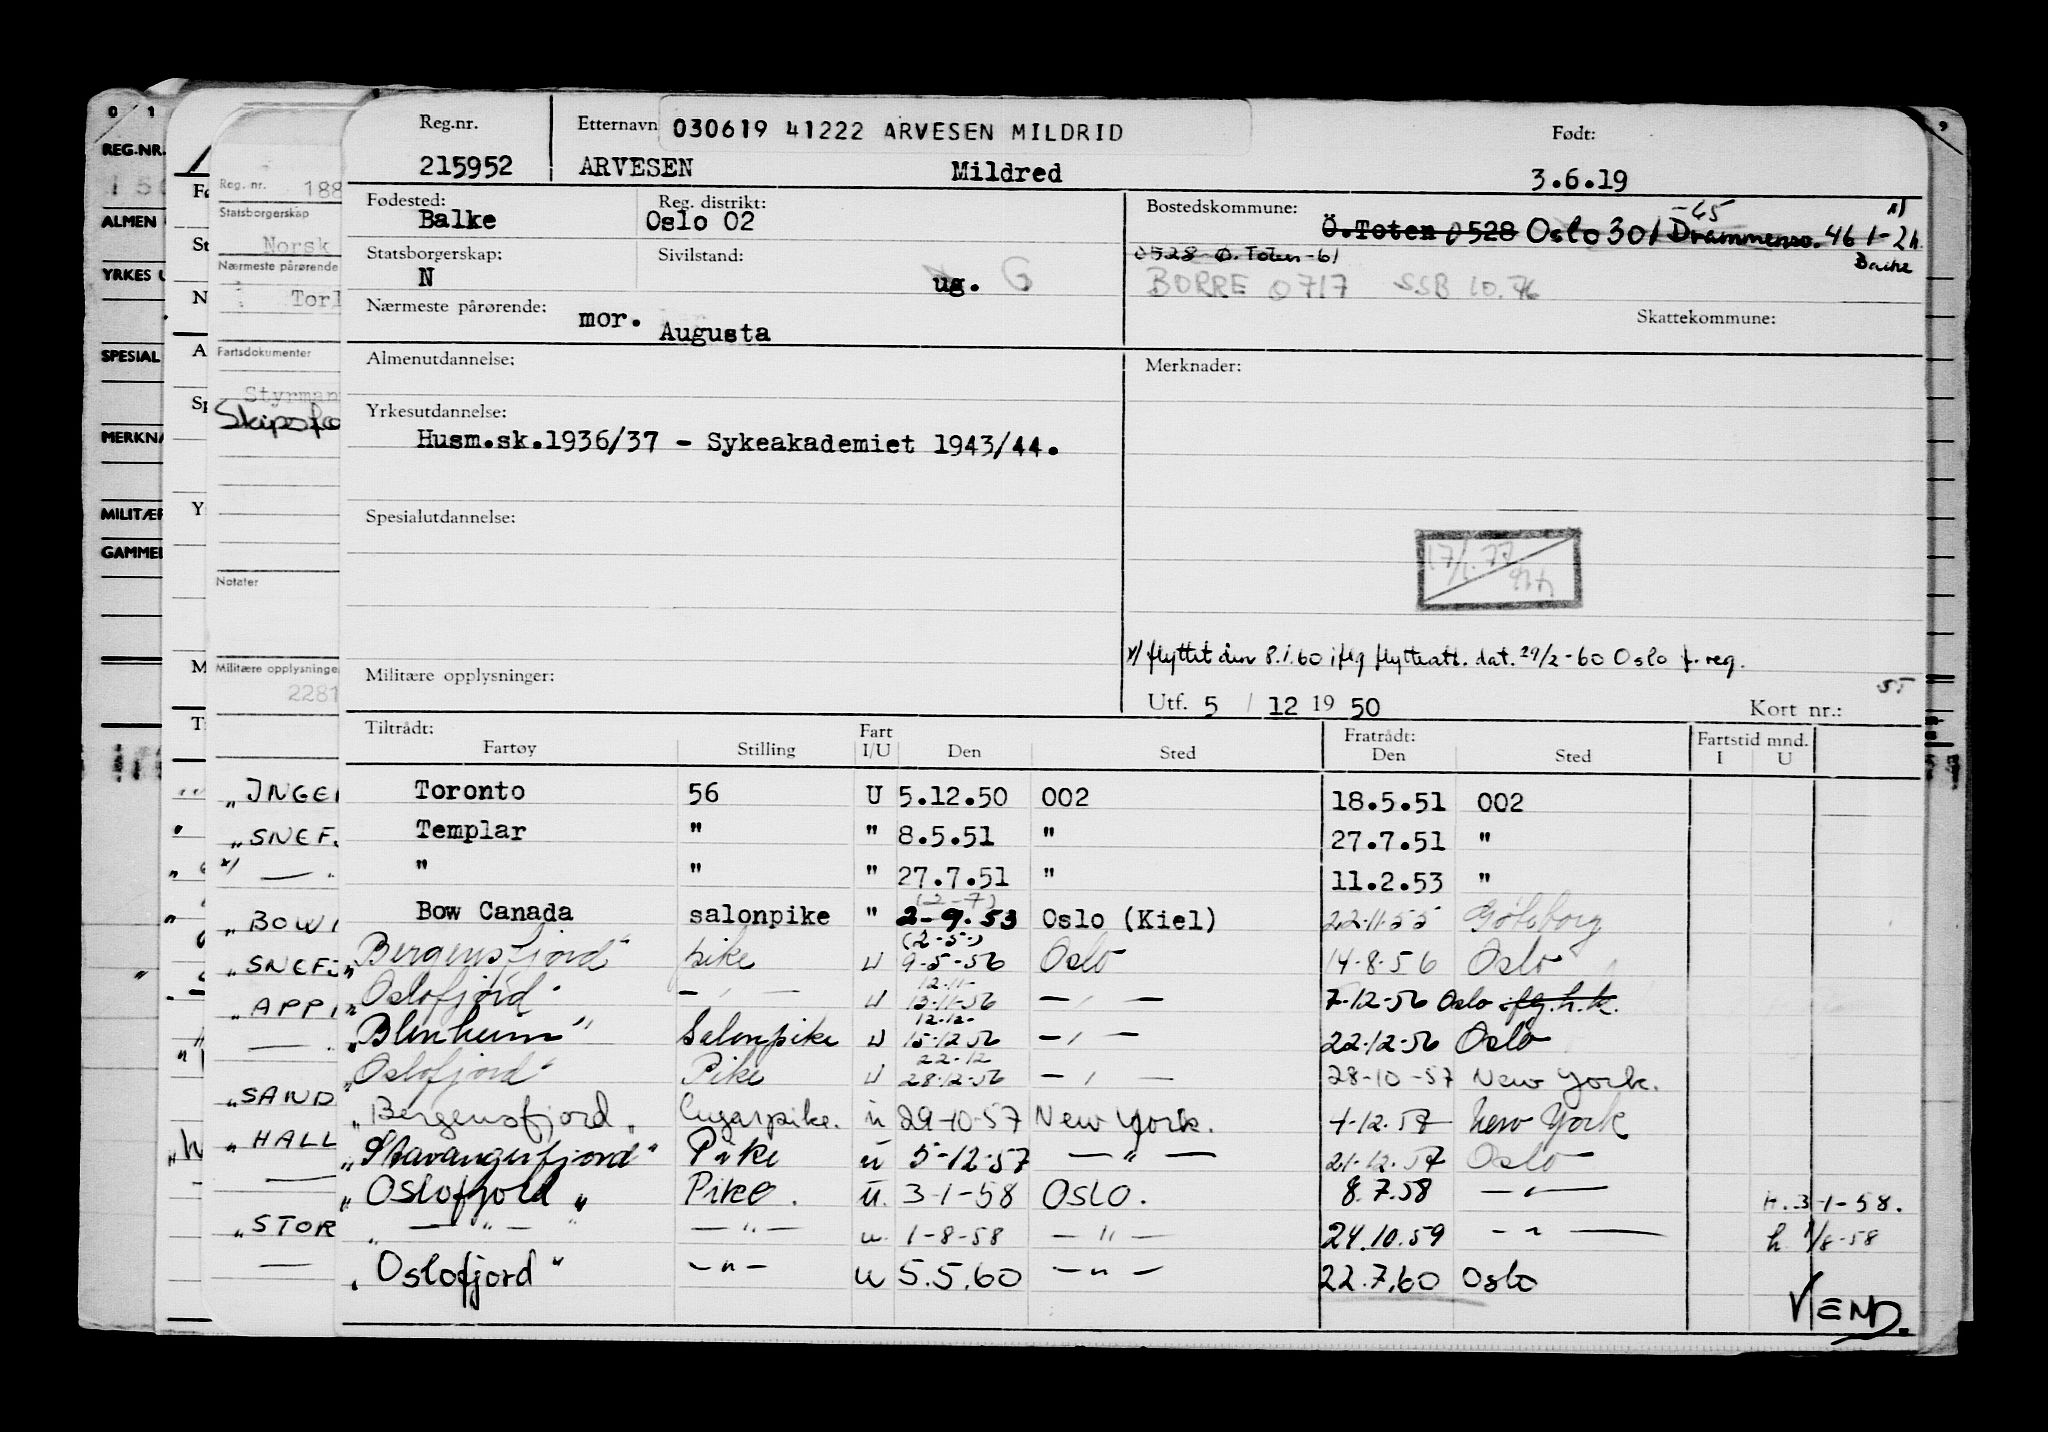 Reg.nr. Etternavn 030619 41222 ARVESEN MILDRID Født:
215952 ARVESEN Mildred 3.6.19
Fødested: Reg. distrikt: Bostedskommune:
Balke Oslo 02 Ö.Toten 0528 Oslo 301 -65 Drammensv. 46 1-2h.
Statsborgerskap: Sivilstand: 0528 Ö. Toten -61
N ug. G BORRE 0717 SSB 10.76
Nærmeste pårørende: mor. Augusta Skattekommune:
Almenutdannelse: Merknader:
Yrkesutdannelse:
Husm.sk.1936/37 - Sykeakademiet 1943/44.
Spesialutdannelse:
17/1.77
x) flyttet den 8.1.60 iflg flytteatt. dat. 29/2-60 Oslo f.reg.
Militære opplysninger: Utf. 5 / 12 19 50 Kort nr.:
Tiltrådt: Fart Fratrådt: Fartstid mnd.
Fartøy Stilling I/U Den Sted Den Sted I U
Toronto 56 U 5.12.50 002 18.5.51 002
Templar " " 8.5.51 " 27.7.51 "
" " " 27.7.51 " 11.2.53 "
Bow Canada salonpike " (2-7) 2-9.53 Oslo (Kiel) 22.11.55 Göteborg
"Bergensfjord" pike u (2-5-) 9-5-56 Oslo 14-8-56 Oslo
"Oslofjord" — " — u 12.11- 13-11-56 — " — 7-12-56 Oslo iflg. h.k.
"Blenheim" Salonpike u 12.12- 15-12-56 — " — 22-12-56 Oslo
"Oslofjord" Pike u 22-12 28-12-56 — " — 28-10-57 New York.
"Bergensfjord" Lugarpike. u 29-10-57 New York. 4-12.57 New York
"Stavangerfjord" Pike u 5-12-57 — " — 21-12.57 Oslo
"Oslofjord" Pike. u. 3-1-58 Oslo. 8.7.58 — " — H. 3-1-58.
" — " — " — " — u. 1-8-58 — " — 24.10.59 — " — h. 1/8-58
"Oslofjord" — " — u 5.5.60 — " — 22.7.60 Oslo
VEND.
REG.NR.
ALMEN
YRKES U
SPESIAL
MERKNA
MILITÆR
GAMMEL
Reg. nr. 188
Statsborgerskap
Norsk
Nærmeste pårørende
Torl
Fartsdokumenter
Styrman
Skipsfø
Notater
Militære opplysninger
2281
"INGE
"SNEF
"BOW
"SNEF
"APP
"SAND
"HALL
"STOR